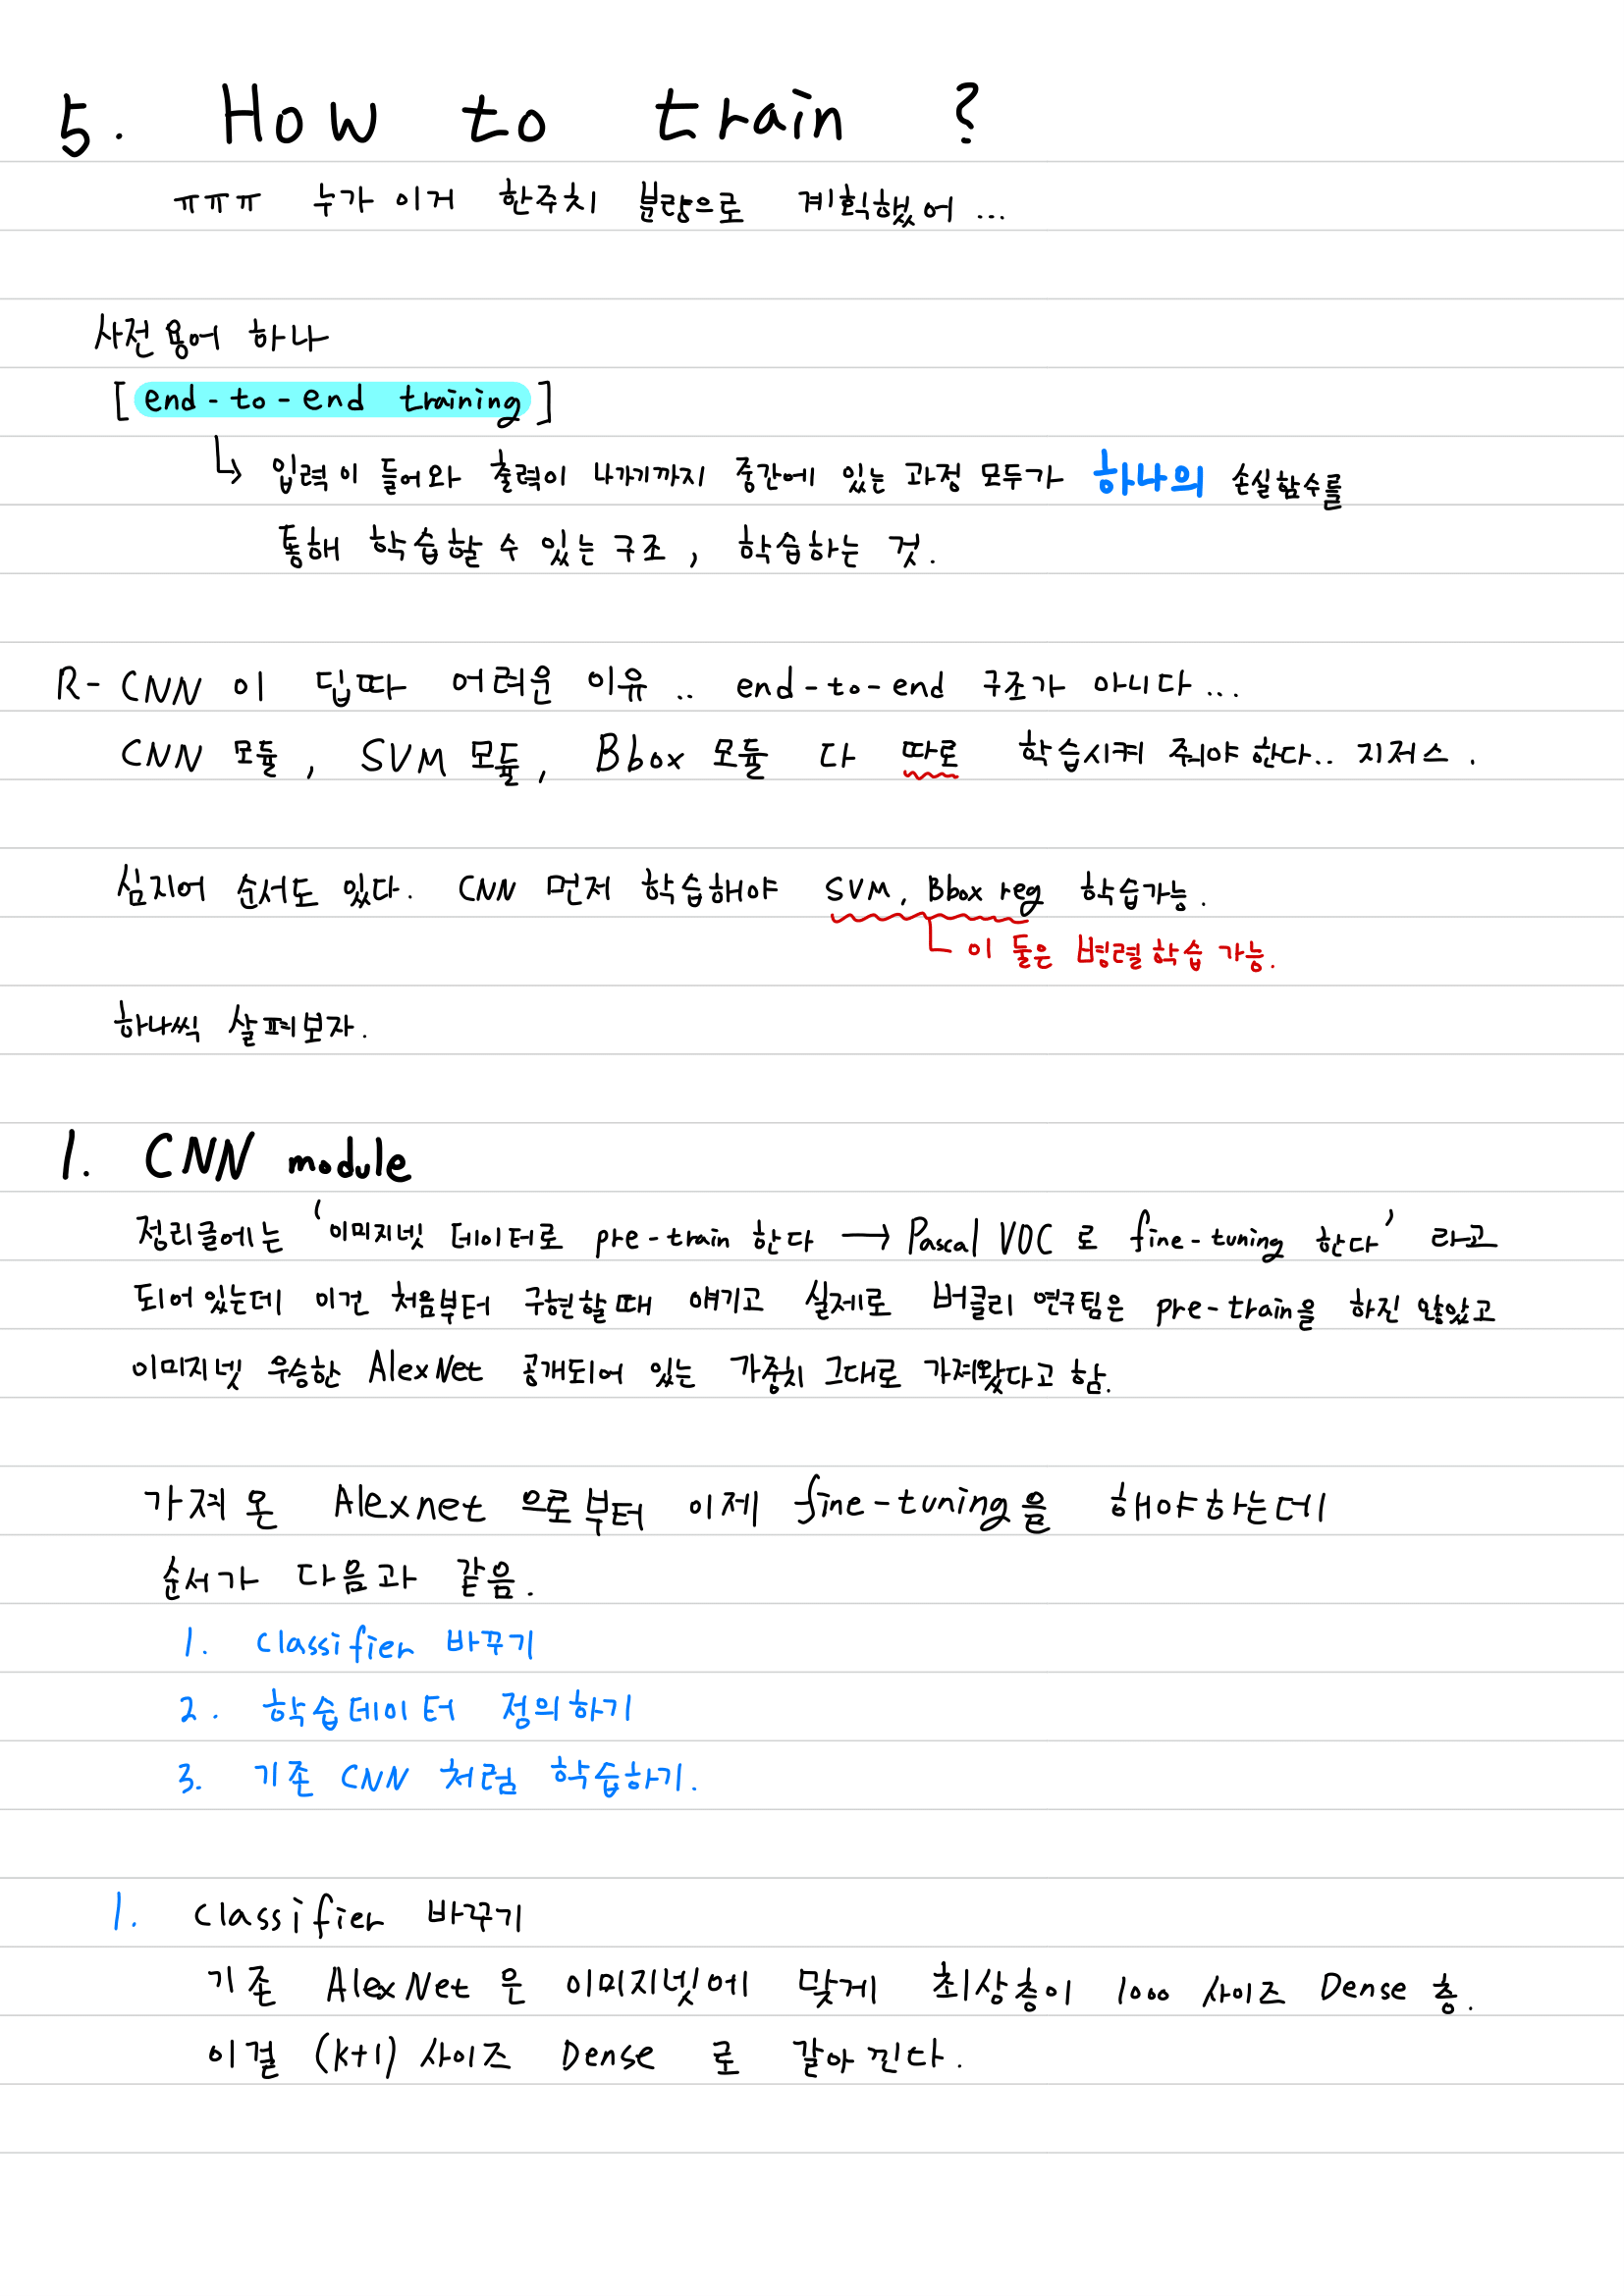 5. How to train ?
ㅠㅠㅠ 누가 이거 한주치 분량으로 계획했어...
사전용어 하나
[end-to-end training]
↳ 입력이 들어와 출력이 나가기까지 중간에 있는 과정 모두가 하나의 손실함수를
통해 학습할 수 있는 구조, 학습하는 것.
R-CNN이 딥따 어려운 이유.. end-to-end 구조가 아니다...
CNN 모듈, SVM 모듈, Bbox 모듈 다 따로 학습시켜 줘야한다.. 지저스.
심지어 순서도 있다. CNN 먼저 학습해야 SVM, Bbox reg 학습가능.
이 둘은 병렬학습 가능.
하나씩 살펴보자.
1. CNN module
정리글에는 '이미지넷 데이터로 pre-train 한다 → Pascal VOC 로 fine-tuning 한다' 라고
되어 있는데 이건 처음부터 구현할때 얘기고 실제로 버클리 연구팀은 pre-train을 하진 않았고
이미지넷 우승한 AlexNet 공개되어 있는 가중치 그대로 가져왔다고 함.
가져온 Alexnet 으로부터 이제 fine-tuning을 해야하는데
순서가 다음과 같음.
1. Classifier 바꾸기
2. 학습데이터 정의하기
3. 기존 CNN 처럼 학습하기.
1. Classifier 바꾸기
기존 AlexNet은 이미지넷에 맞게 최상층이 1000 사이즈 Dense 층.
이걸 (k+1) 사이즈 Dense 로 갈아낀다.